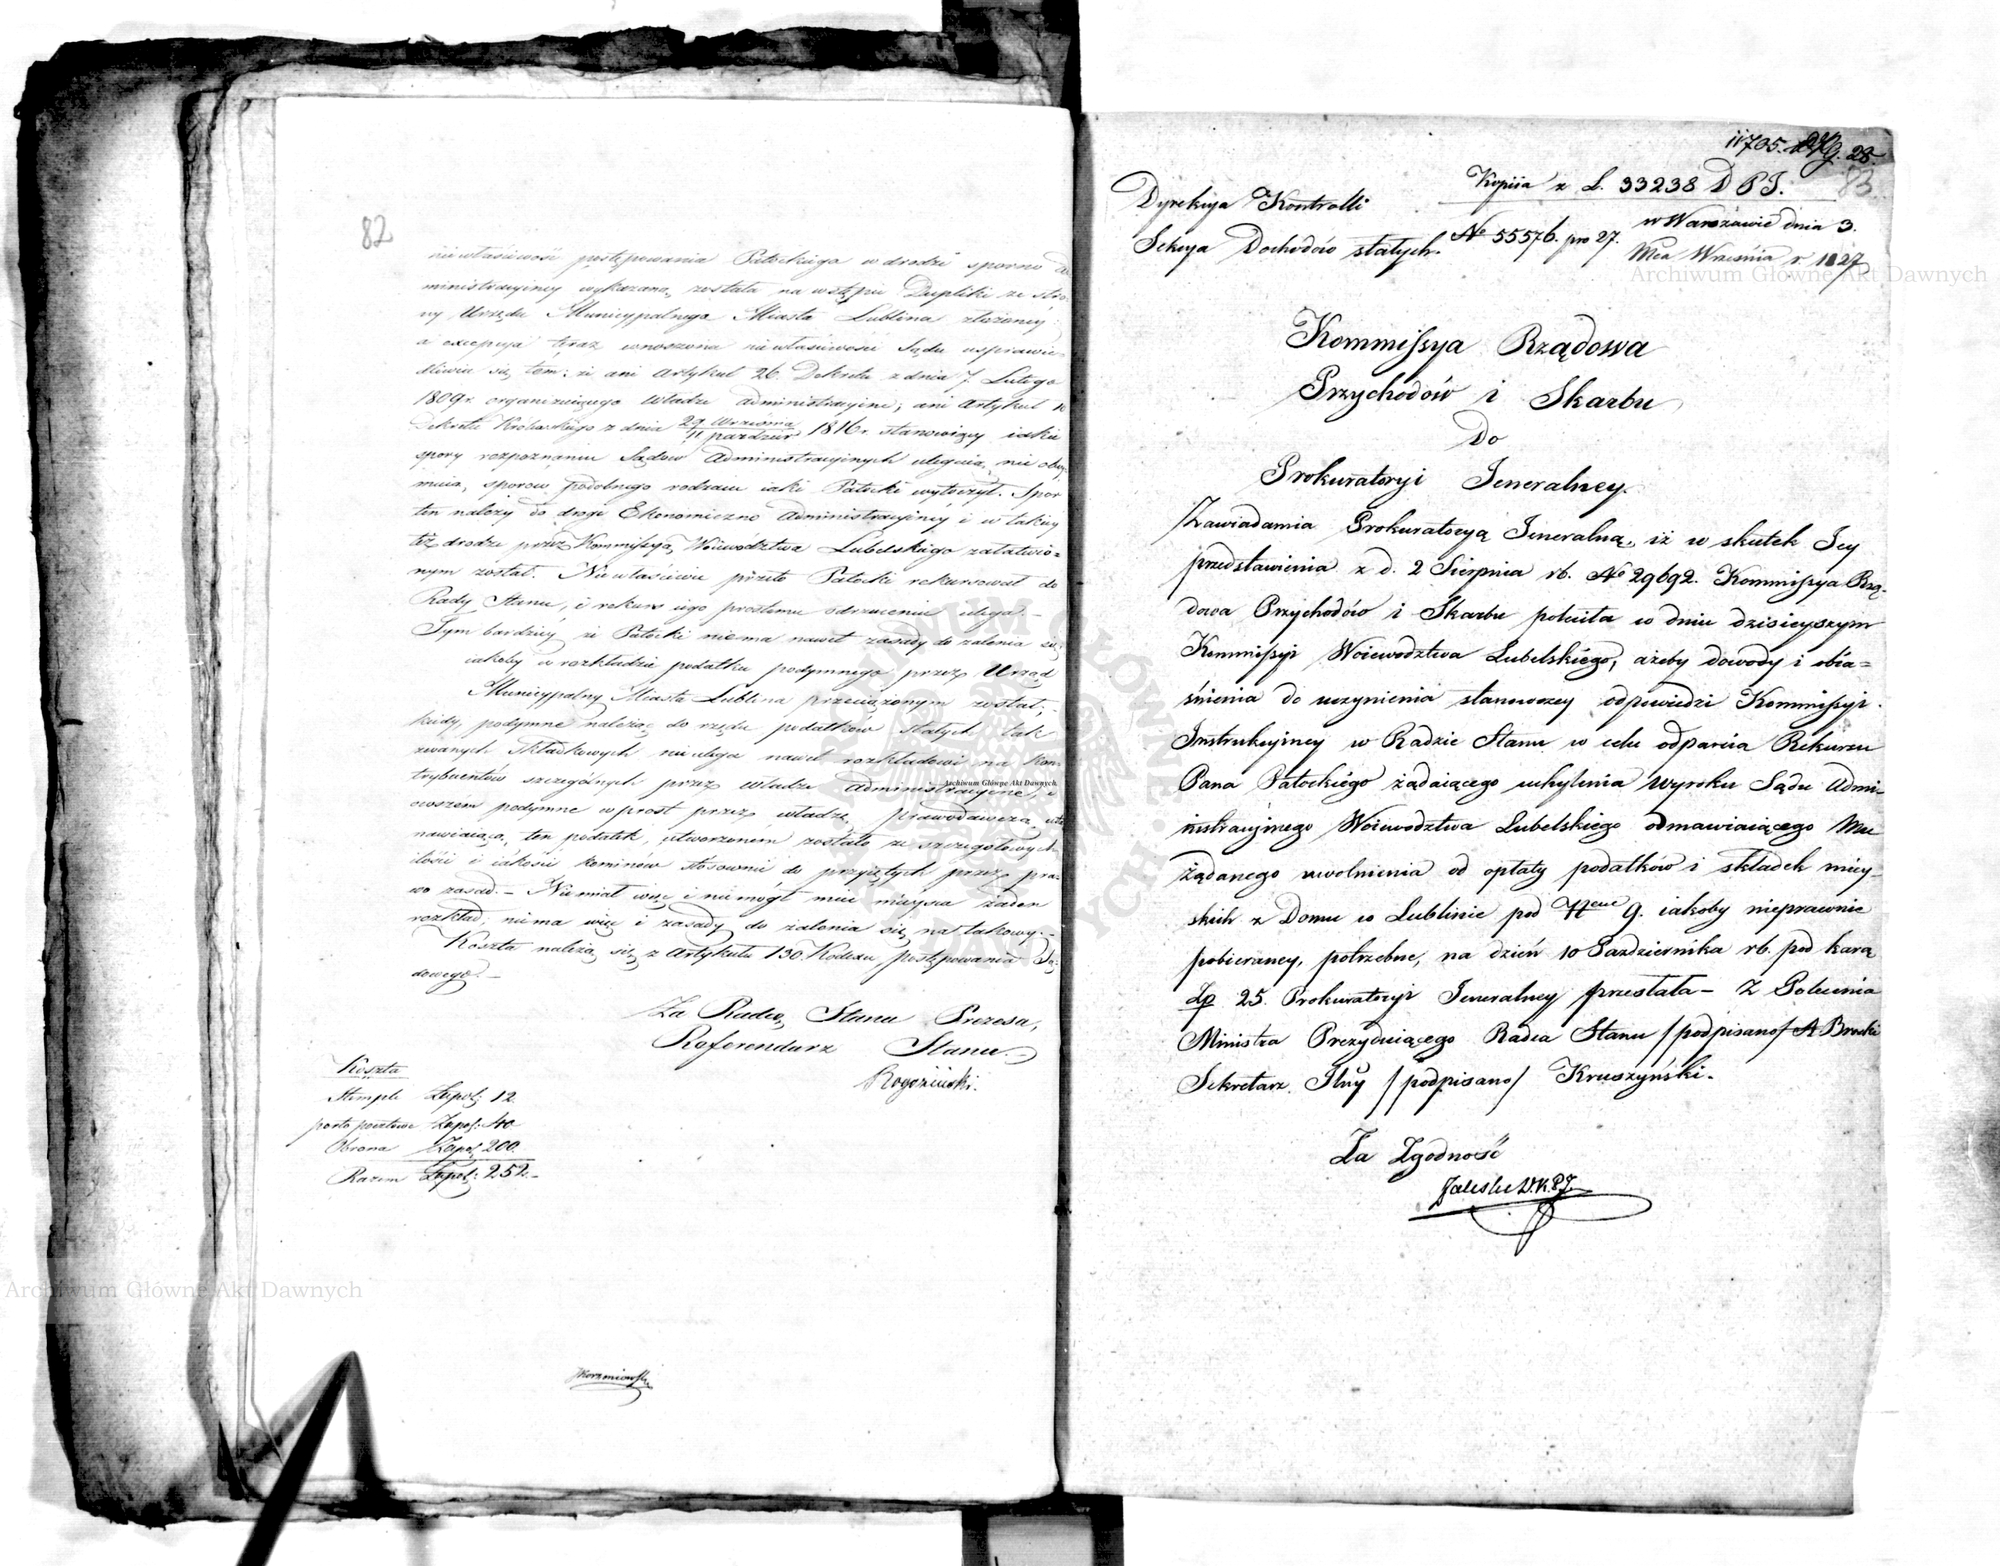 82
niewłaściwość postępowania Patockiego w drodze sporno ad
ministracyiney wykazaną została na wstępie Dupliki ze stro
ny Urzędu Municypalnego Miasta Lublina złożoney
a excepcya teraz wnoszona niewłaściwości Sądu usprawie
dliwia się tem: że ani Artykuł 26. Dekretu z dnia 7. Lutego
1809r. organizuiącego władze administracyine; ani Artykuł 10
Dekretu Królewskiego z dnia 29 Września / 11 paździer 1816 r. stanowiący iakie
spory rozpoznaniu Sądów Administracyinych ulegaią, nie obey
muią, sporów podobnego rodzaiu iaki Patocki wytoczył. Spór
ten należy do drogi Ekonomiczno Administracyiney i w takiey
też drodze przez Kommissyą Woiewodztwa Lubelskiego załatwio-
nym został. Niewłaściwie przeto Patocki rekursował do
Rady Stanu, i rekurs iego prostemu odrzuceniu ulega. –
Tym bardziey że Patocki nie ma nawet zasady do żalenia się
iakoby w rozkładzie podatku podymnego przez Urząd
Municypalny Miasta Lublina przeciążonym został; –
kiedy podymne należąc do rzędu podatków stałych tak
zwanych składkowych nie ulega nawet rozkładowi na kon
trybuentów szczególnych przez władze Administracyine, i
owszem podymne wprost przez władzę Prawodawczą usta
nawiaiącą ten podatek, utworzonem zostało ze szczegółowych
ilości i iakości kominów stosownie do przyiętych przez pra
wo zasad. – Nie miał więc i nie mógł mieć mieysca żaden
rozkład, nie ma więc i zasady do żalenia się na takowy. –
Koszta należą się z Artykułu 130 Kodexu postępowania Są
dowego. –
Za Radcę Stanu Prezesa,
Referendarz Stanu
Rogoziński.
Koszta
Stemple Złpol: 12
porto pocztowe Złpol: 40
Obrona Złpol 200.
Razem Złpol: 252. –
Korzeniowski
11705. 28.
83
Kopiia z L. 33238 D P J.
Dyrekcya Kontrolli
Sekcya Dochodów stałych.
No 55576. pro 27.
w Warszawie dnia 3.
Mca Września r. 1827
Kommissya Rządowa
Przychodów i Skarbu
Do
Prokuratoryi Jeneralney.
Zawiadamia Prokuratoryą Jeneralną, iż w skutek Jey
przedstawienia z d. 2 Sierpnia rb. No 29692. Kommissya Rzą-
dowa Przychodów i Skarbu poleciła w dniu dzisieyszym
Kommissyi Woiewodztwa Lubelskiego, ażeby dowody i obia=
śnienia do uczynienia stanowczey odpowiedzi Kommissyi
Instrukcyiney w Radzie Stanu w celu odparcia Rekursu
Pana Patockiego żądaiącego uchylenia Wyroku Sądu Admi-
nistracyinego Woiewodztwa Lubelskiego odmawiaiącego Mu
żądanego uwolnienia od opłaty podatków i składek miey-
skich z Domu w Lublinie pod Nrem 9. iakoby nieprawnie
pobieraney, potrzebne, na dzień 10 Października rb. pod karą
Zp 25. Prokuratoryi Jeneralney przesłała – Z Polecenia
Ministra Prezyduiącego Radca Stanu /podpisano/ A Brocki
Sekretarz Jlny /podpisano/ Kruszyński.
Za Zgodność
Archiwum Główne Akt Dawnych
Archiwum Główne Akt Dawnych
Archiwum Główne Akt Dawnych